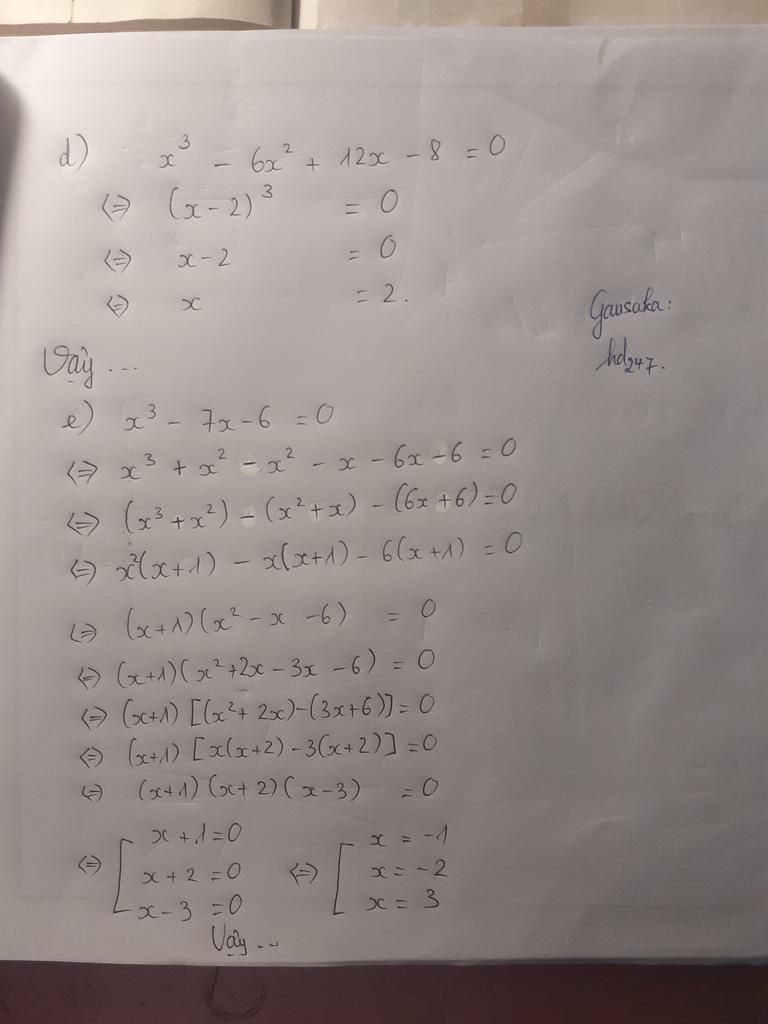 d) x³ - 6x² + 12x - 8 = 0
⇔ (x-2)³ = 0
⇔ x-2 = 0
⇔ x = 2.
Gausaka:
hd247.
Vậy ...
e) x³ - 7x - 6 = 0
⇔ x³ + x² - x² - x - 6x - 6 = 0
⇔ (x³ + x²) - (x² + x) - (6x + 6) = 0
⇔ x²(x+1) - x(x+1) - 6(x+1) = 0
⇔ (x+1)(x² - x - 6) = 0
⇔ (x+1)(x² + 2x - 3x - 6) = 0
⇔ (x+1) [(x² + 2x) - (3x+6)] = 0
⇔ (x+1) [x(x+2) - 3(x+2)] = 0
⇔ (x+1)(x+2)(x-3) = 0
⇔ [ x+1 = 0 ⇔ [ x = -1
x+2 = 0 x = -2
x-3 = 0 x = 3
Vậy ...